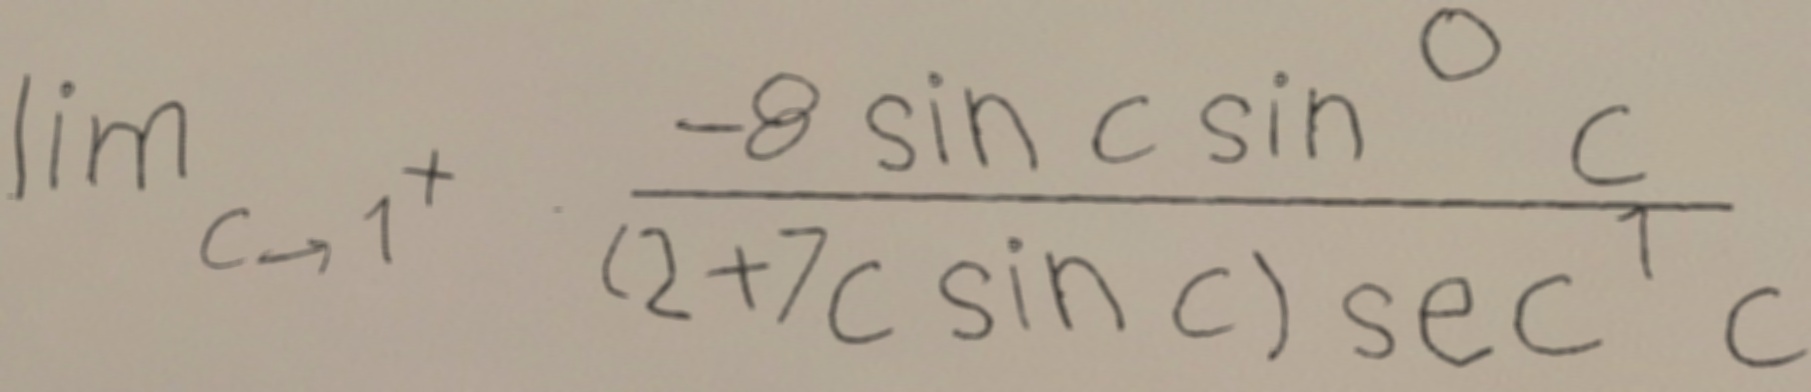 \lim_{c \to 1^+} \frac{-8 \sin c \sin^0 c}{(2+7c \sin c) \sec^1 c}